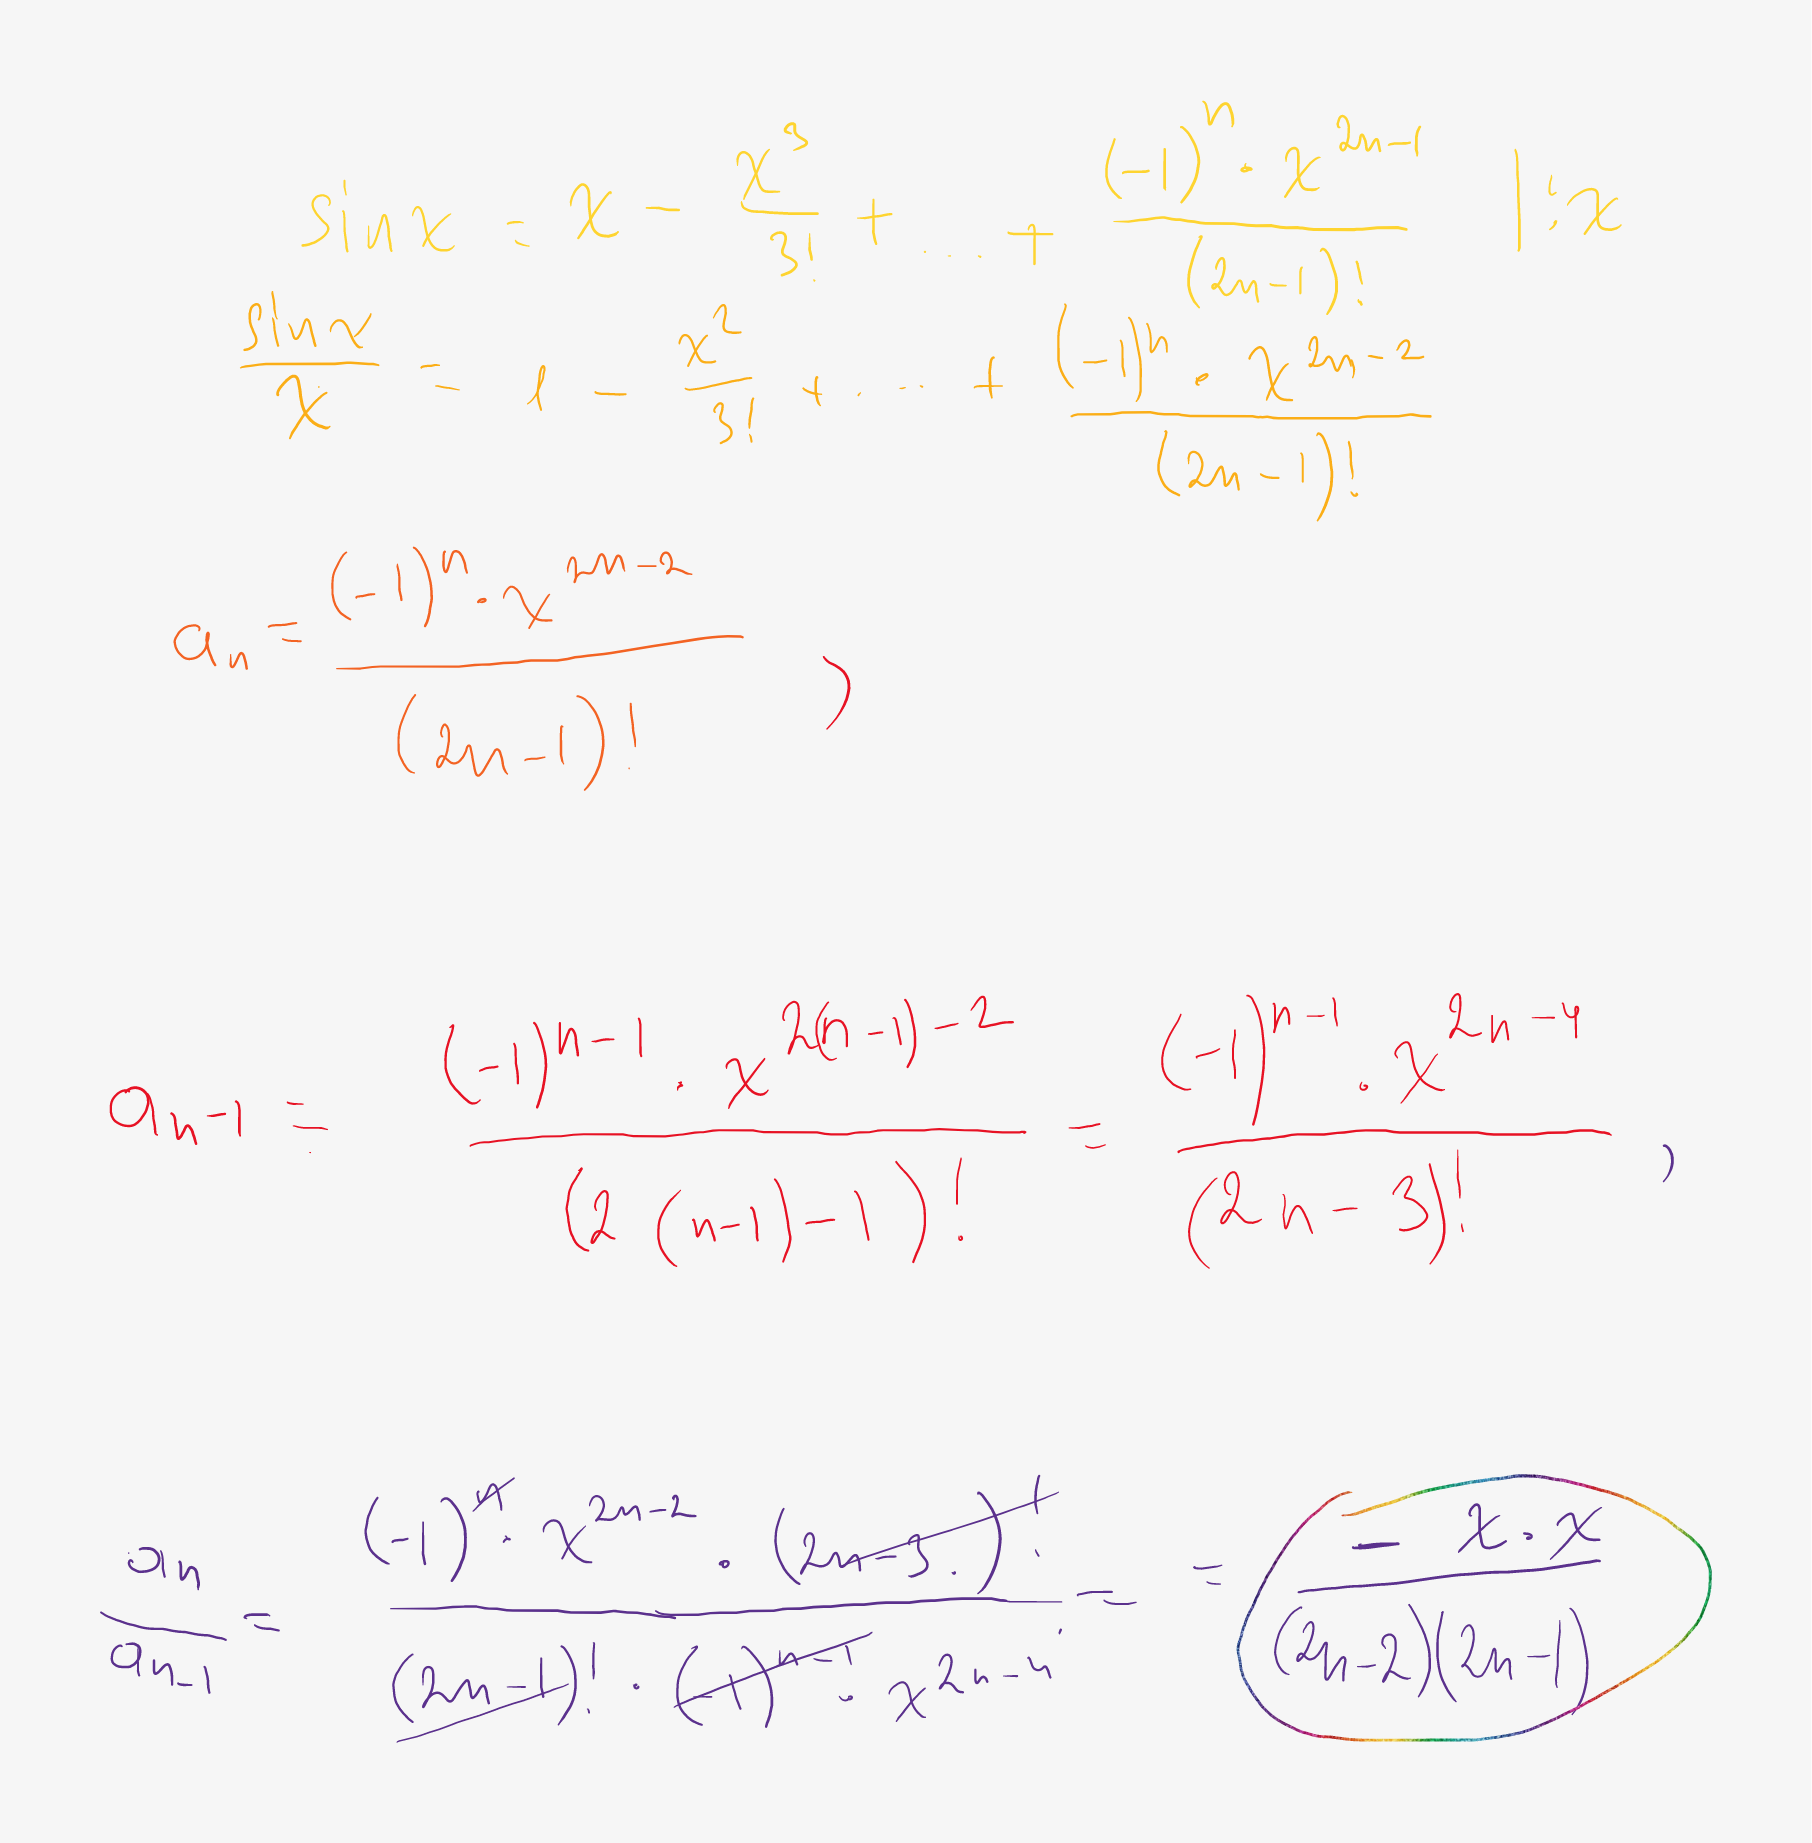 sin x = x - x^3/3! + ... + ((-1)^n · x^(2n-1))/(2n-1)! | : x
sin x/x = 1 - x^2/3! + ... + ((-1)^n · x^(2n-2))/(2n-1)!
a_n = ((-1)^n · x^(2n-2))/(2n-1)! ,
a_(n-1) = ((-1)^(n-1) · x^(2(n-1)-2))/(2(n-1)-1)! = ((-1)^(n-1) · x^(2n-4))/(2n-3)! ,
a_n/a_(n-1) = ((-1)^n · x^(2n-2) · (2n-3)!)/((2n-1)! · (-1)^(n-1) · x^(2n-4)) = = (- x · x)/((2n-2)(2n-1))